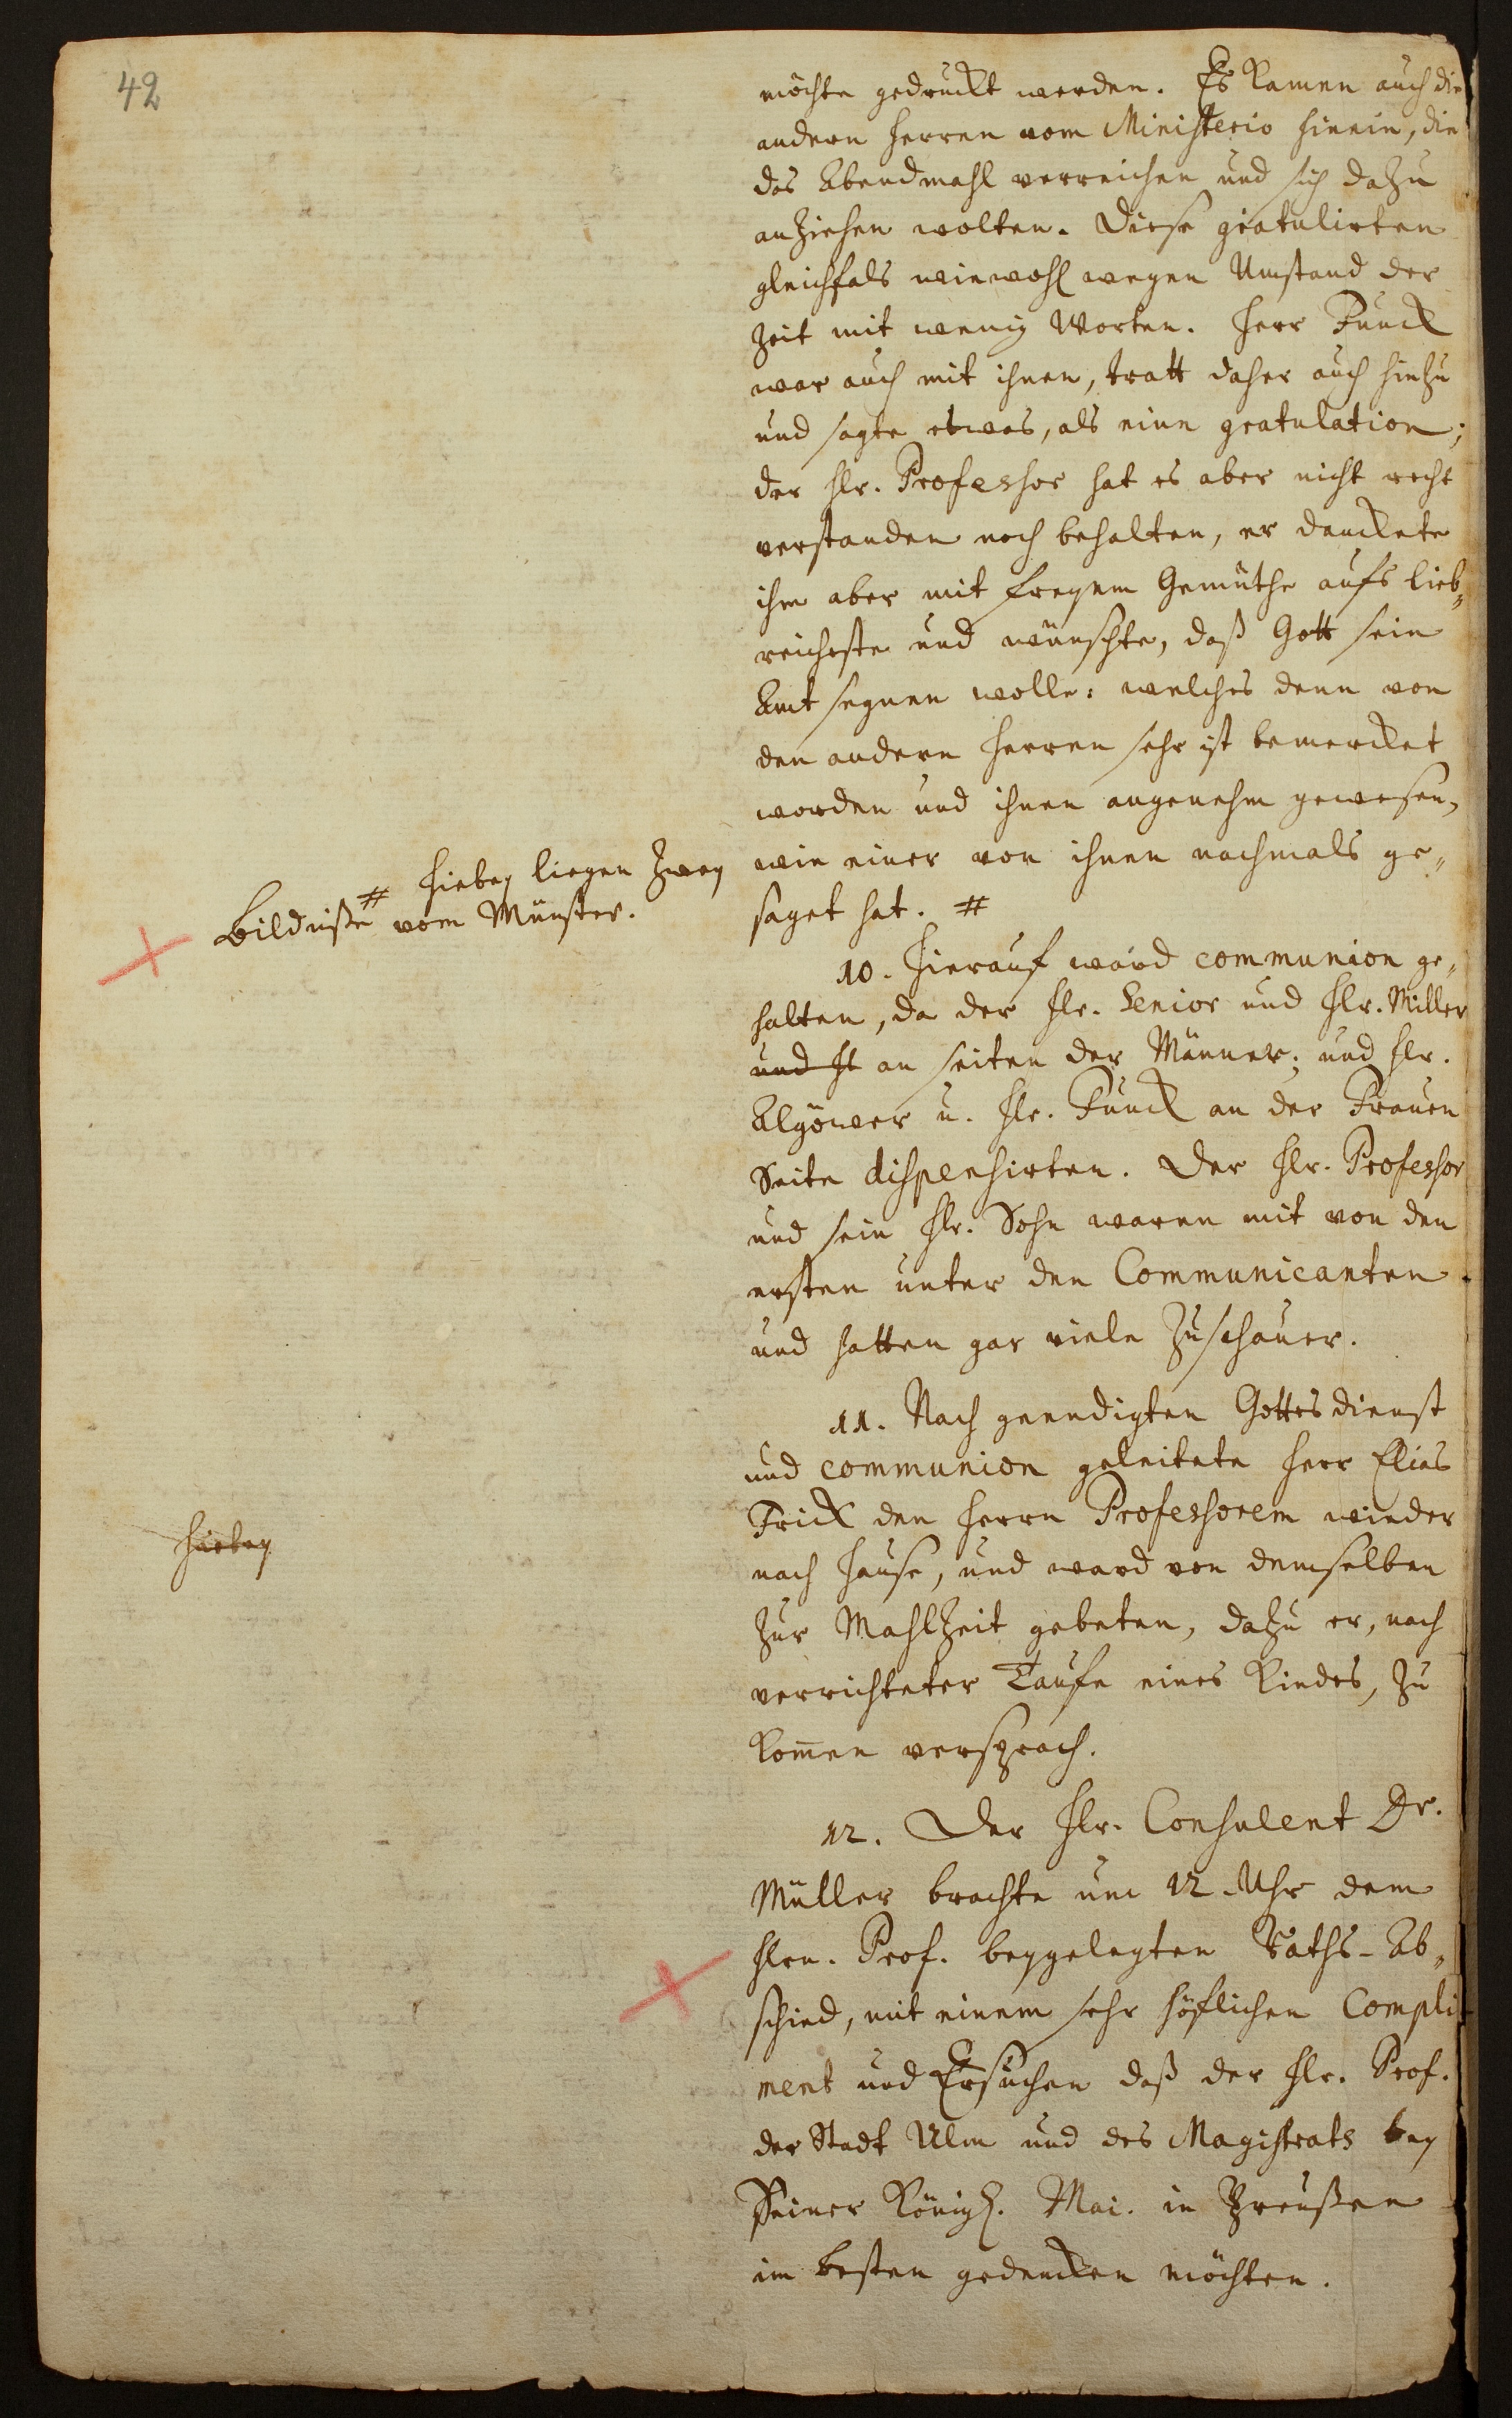 42
möchte gedruckt werden. Es kamen auch die
andern Herren vom Ministerio hinein, die
das Abendmahl verreichen und sich dazu
anziehen wolten. Diese gratulirten
gleichfals wiewohl wegen Umstand der
Zeit mit wenig Worten. Herr Funck
war auch mit ihnen, tratt daher auch hinzu
und sagte etwas, als eine gratulation;
der Hr. Professor hat es aber nicht recht
verstanden noch behalten, er danckete
ihm aber mit freyem Gemüthe aufs lieb-
reichste und wünschte, daß Gott sein
Amt segnen wolle: welches denn von
den andern Herren sehr ist bemercket
worden und ihnen angenehm gewesen,
wie einer von ihnen nachmals ge-
saget hat. #
# Hiebey liegen zwey
Bildniße vom Münster.
10. Hierauf ward communion ge-
halten, da der Hr. Senior und Hr. Miller
und H an seiten der Männer; und Hr.
Algöwer u. Hr. Funck an der Frauen
Seite dispensirten. Der Hr. Professor
und sein Hr. Sohn waren mit von den
ersten unter den Communicanten
und hatten gar viele Zuschauer.
11. Nach geendigten Gottesdienst
und communion geleitete Herr Elias
Frick den Herrn Professorem wieder
nach Hause, und ward von demselben
Hiebey
zur Mahlzeit gebeten, dazu er, nach
verrichteter Taufe eines Kindes, zu
kom̄en versprach.
12. Der Hr. Consulent Dr.
Müller brachte um 12. Uhr dem
Hrn. Prof. beygelegten Raths-Ab-
schied, mit einem sehr höflichen Compli-
ment und Ersuchen daß der Hr. Prof.
der Stadt Ulm und des Magistrats bey
Seiner Königl. Mai. in Preußen
im besten gedencken möchten.